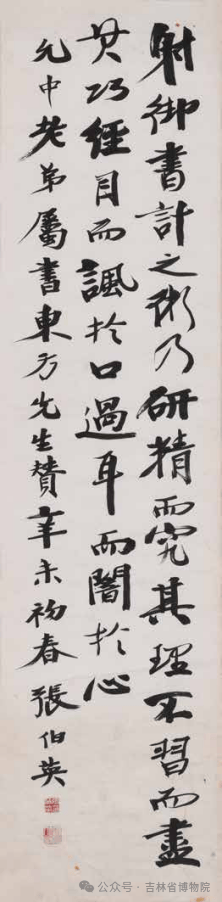 射御書計之術乃研精而究其理不習而盡
其巧經目而諷於口過耳而闇於心
允中老弟屬書東方先生贊辛未初春張伯英
公众号·吉林省博物院